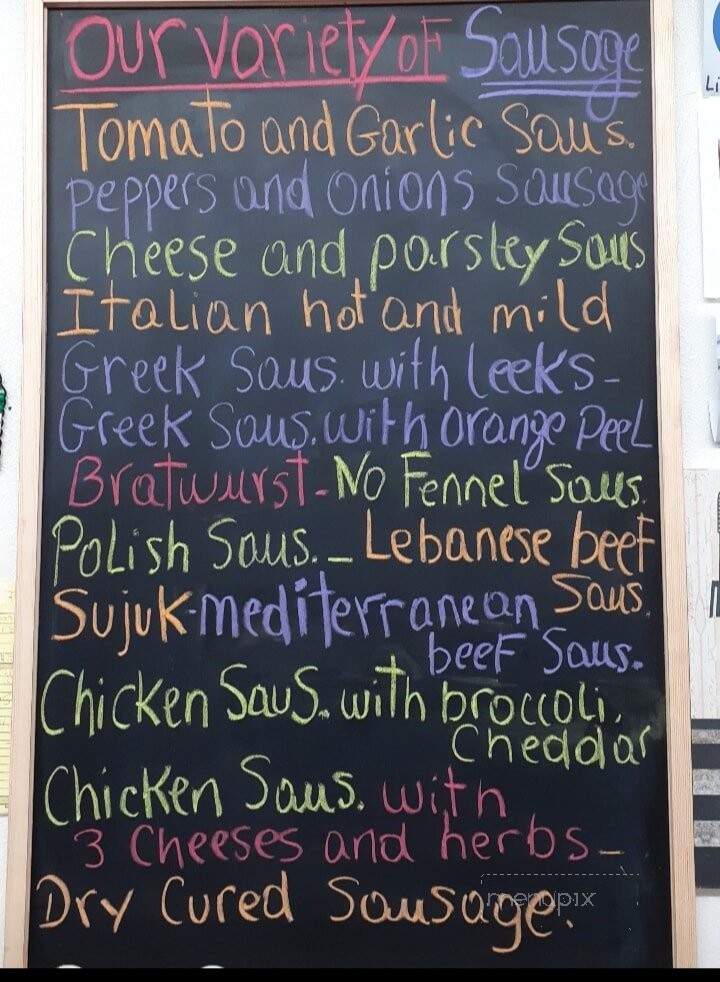 Our variety of Sausage
Tomato and Garlic Saus.
peppers and onions sausage
Cheese and parsley Saus
Italian hot and mild
Greek Saus. with leeks-
Greek Saus. with orange peel
Bratwurst-No Fennel Saus.
Polish Saus.- Lebanese beef
Saus.
Sujuk-mediterranean
beef Saus.
Chicken Saus. with broccoli.
Cheddar
Chicken Saus. with
3 Cheeses and herbs-
Dry Cured Sausage.
menupix
Li